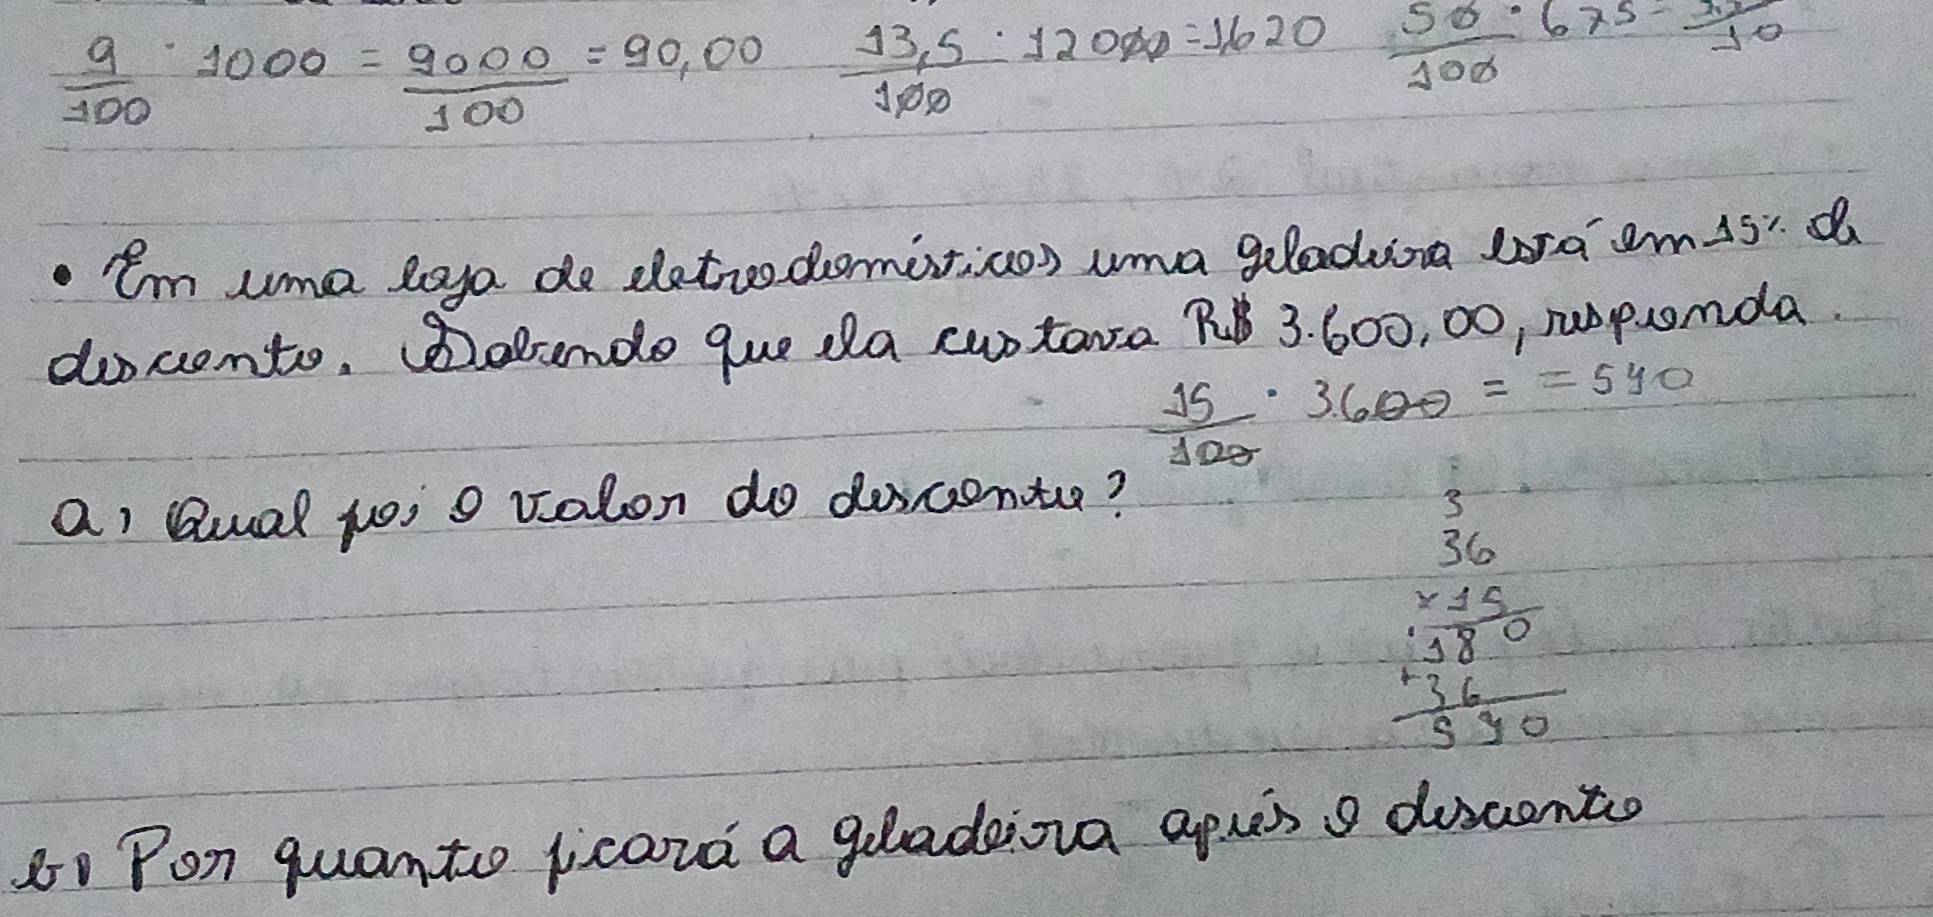 9/100 · 1000 = 9000/100 = 90,00 13,5/100 · 12000 = 1620 50/100 · 675 = /10
• Em uma loja de eletrodomésticos uma geladeira está em 15% de
desconto. Sabendo que ela custava R$ 3.600,00, responda.
15/100 · 3.600 = = 540
a) Qual foi o valor do desconto?
3
36
×15
180
+36
540
b) Por quanto ficará a geladeira após o desconto